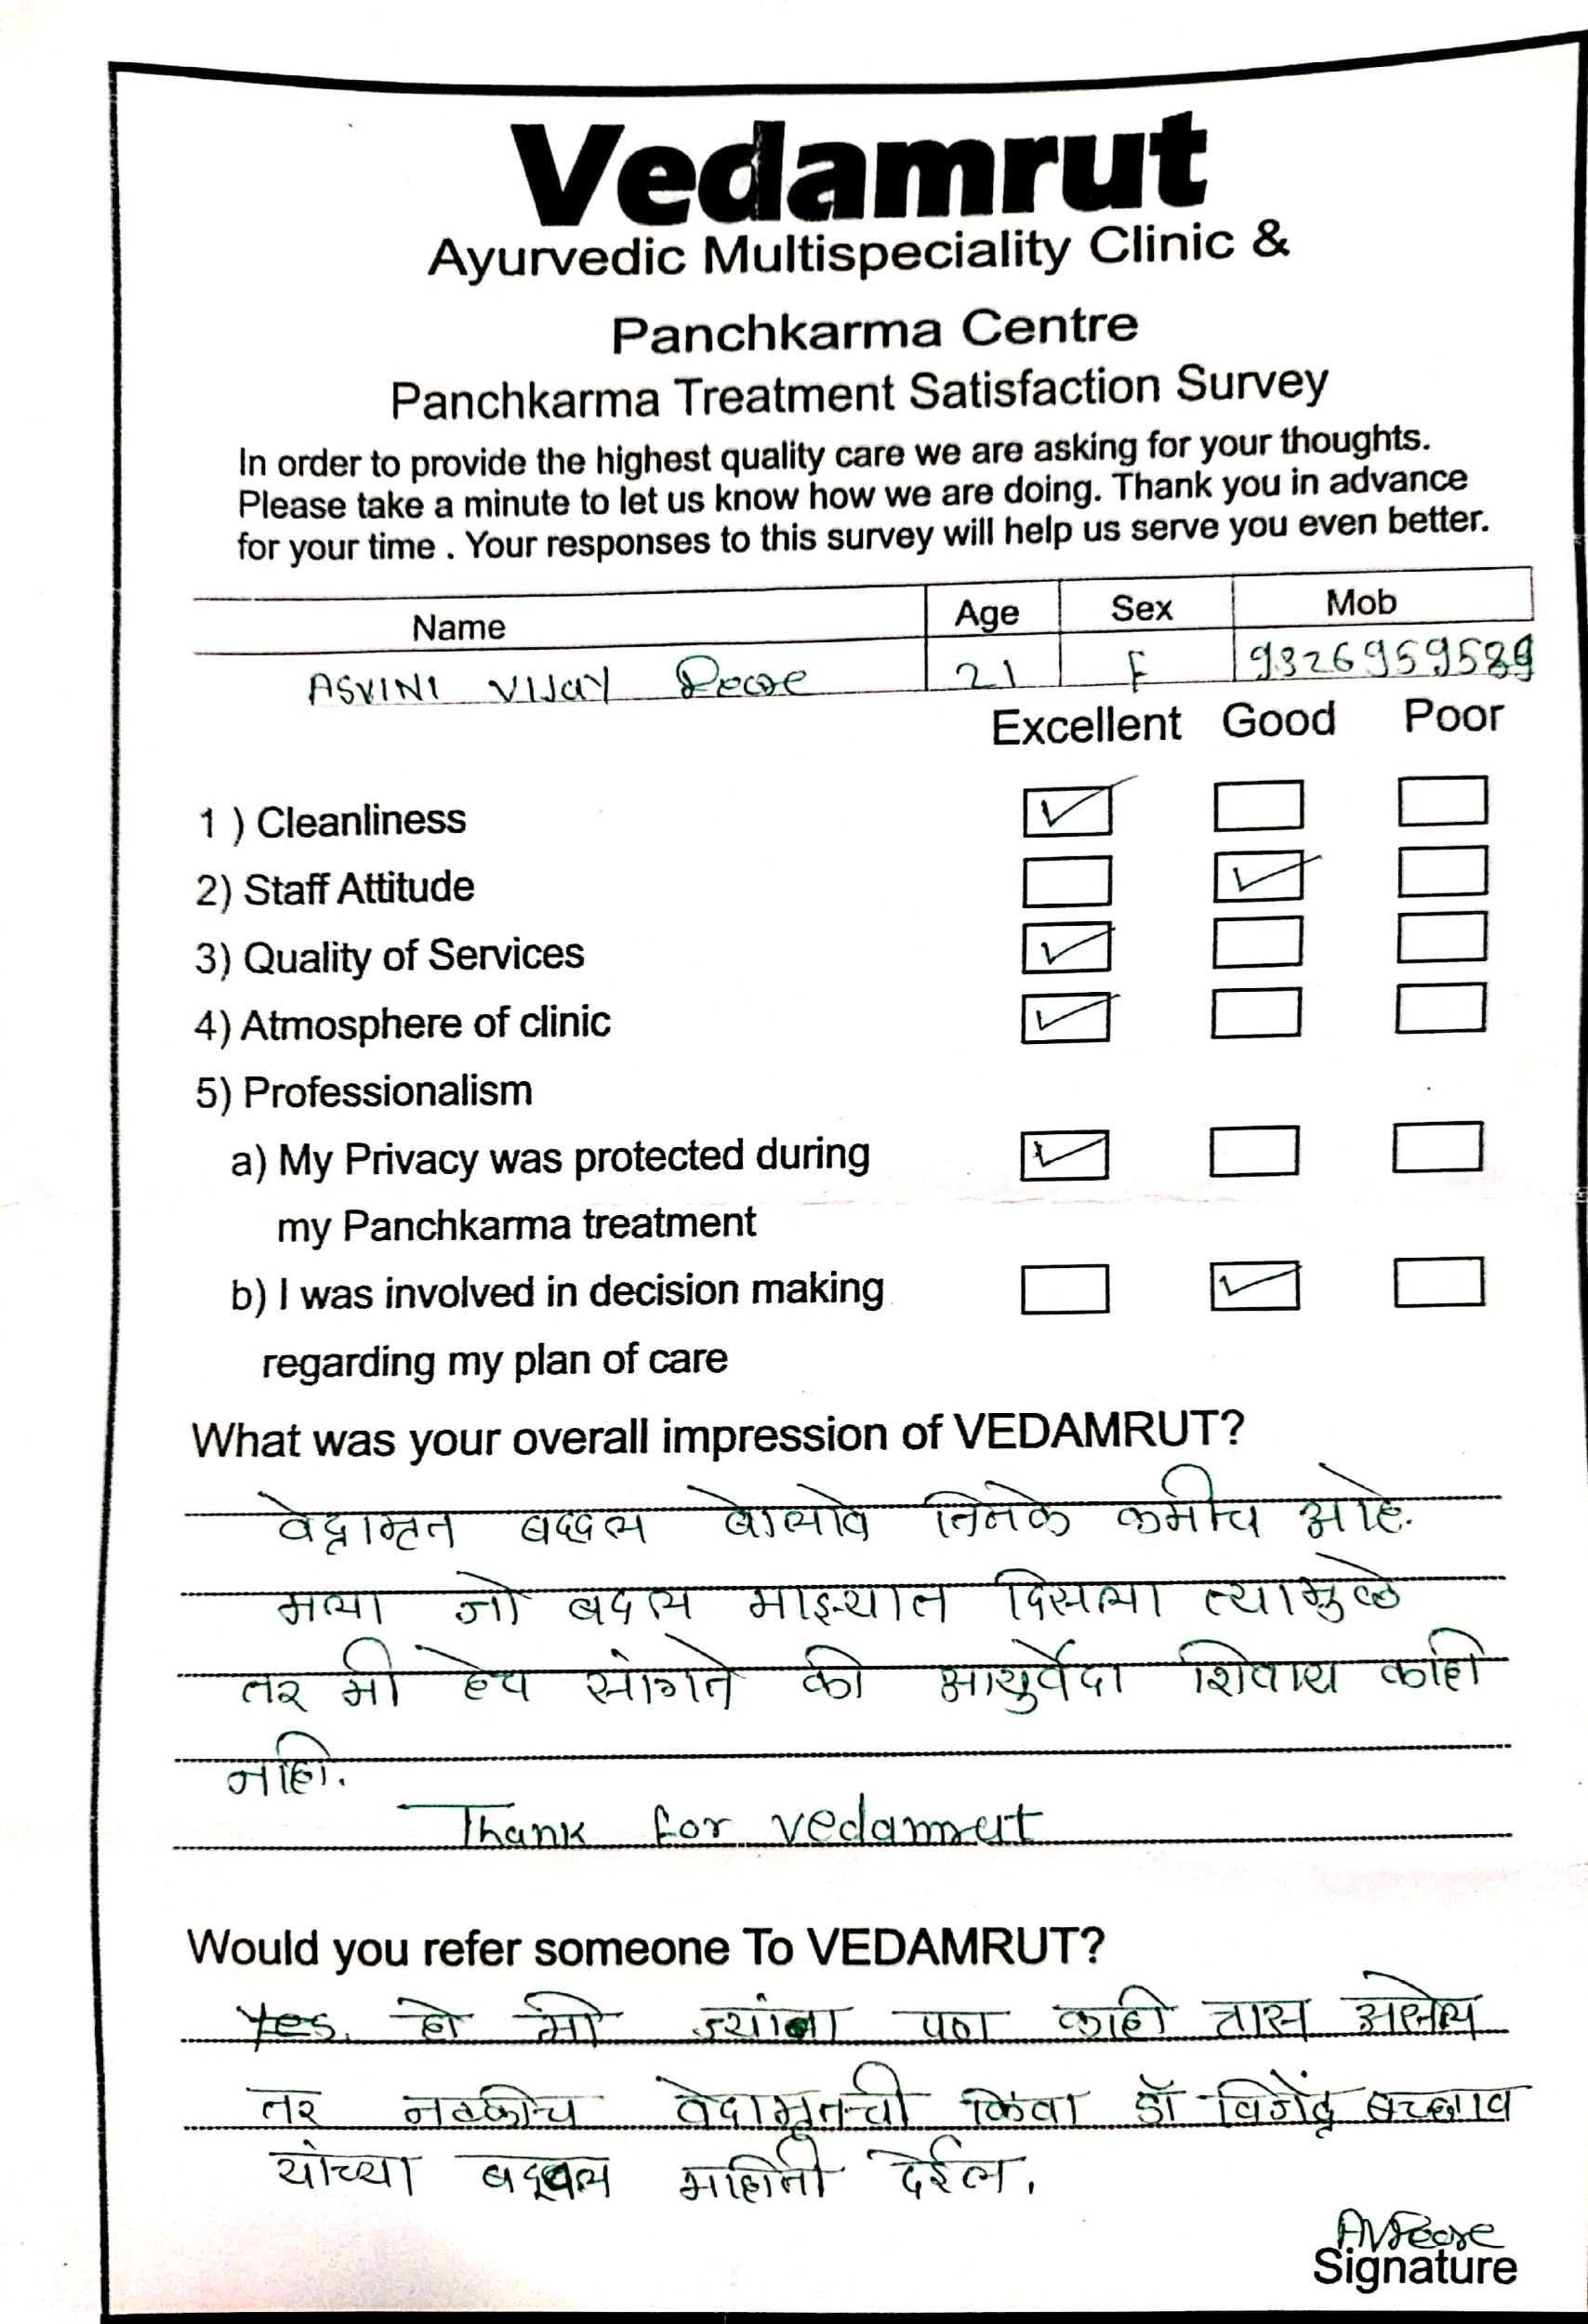 Vedamrut
Ayurvedic Multispeciality Clinic &
Panchkarma Centre
Panchkarma Treatment Satisfaction Survey
In order to provide the highest quality care we are asking for your thoughts.
Please take a minute to let us know how we are doing. Thank you in advance
for your time . Your responses to this survey will help us serve you even better.
Name Age Sex Mob
ASVINI VIJAY 21 F 9326959589
Excellent Good Poor
1 ) Cleanliness
2) Staff Attitude
3) Quality of Services
4) Atmosphere of clinic
5) Professionalism
a) My Privacy was protected during
my Panchkarma treatment
b) I was involved in decision making
regarding my plan of care
What was your overall impression of VEDAMRUT?
वेदामृत बद्दल बोलावे तितके कमीच आहे.
मला जो बदल माझ्यात दिसला त्यामुळे
तर मी हेच सांगते की आयुर्वेदा शिवाय काही
नाही.
Thank for vedamrut
Would you refer someone To VEDAMRUT?
Yes. हो मी ज्यांना पण काही त्रास असेल
तर नक्कीच वेदामृतची किंवा डॉ विजेंद्र बच्छाव
यांच्या बद्दल माहिती देईल.
Signature